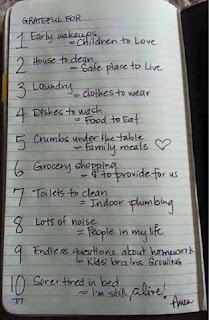 GRATEFUL FOR...
1 Early wakeups
= Children to Love
2 House to clean
= Safe place to Live
3 Laundry
= clothes to wear
4 DIshes to wash
= Food to Eat
5 Crumbs under the table
= Family meals ♡
6 Grocery shopping
= $ to provide for us
7 Toilets to clean
= Indoor plumbing
8 Lots of noise
= People in my life
9 Endless questions about homework
= Kids' brains Growing
10 Sore & tired in bed
= I'm still alive!
Amen